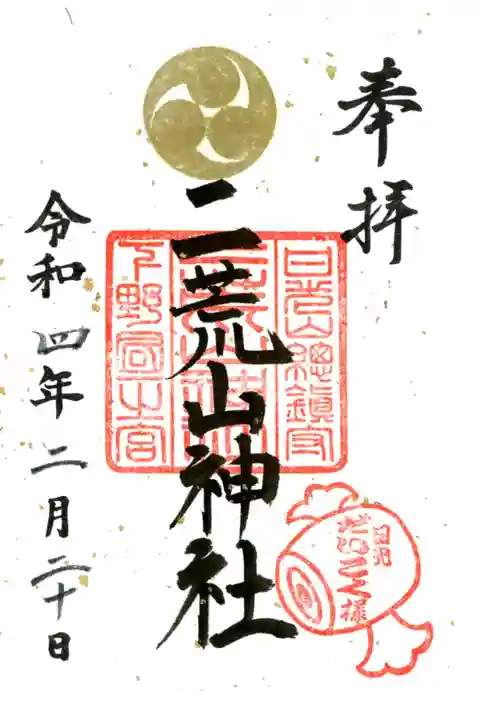 奉拝
日光山總鎮守
二荒山神社
二荒山神社
下野國一之宮
令和四年二月二十日
日光
だいこく様